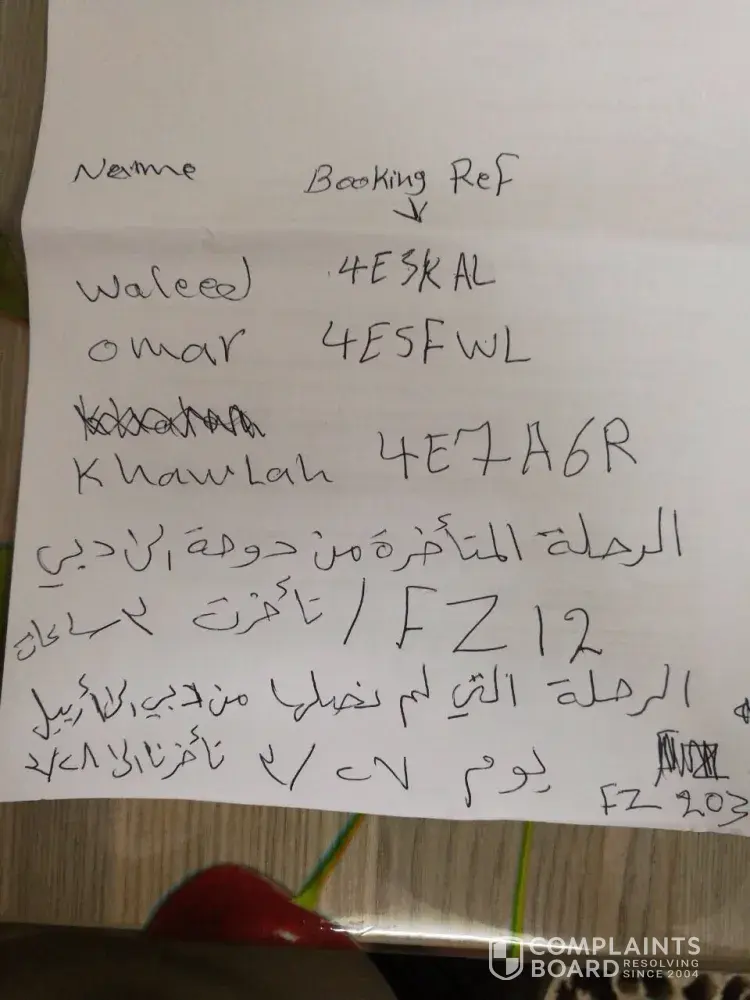 Name Booking Ref
waleed 4ESKAL
omar 4ESFWL
Khawlah 4E7A6R
الرحلة المتأخرة من دوحة الى دبي
FZ12 / تأخرت ٣ ساعات
الرحلة التي لم نصلها من دبي الى أربيل
يوم ٢٧ / ٣ تأخرنا الى ٢٨/٣
FZ 203
COMPLAINTS
BOARD RESOLVING
SINCE 2004